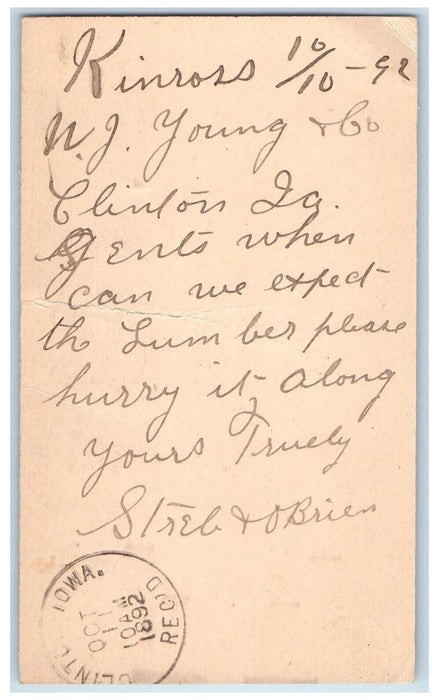 Kinross 10/10-92
W. J. Young & Co
Clinton Ia.
Gents when
can we expect
th Lumber please
hurry it along
Yours Truely
Streb & OBrien
CLINTO IOWA. REC'D
OCT
11
10AM
1892